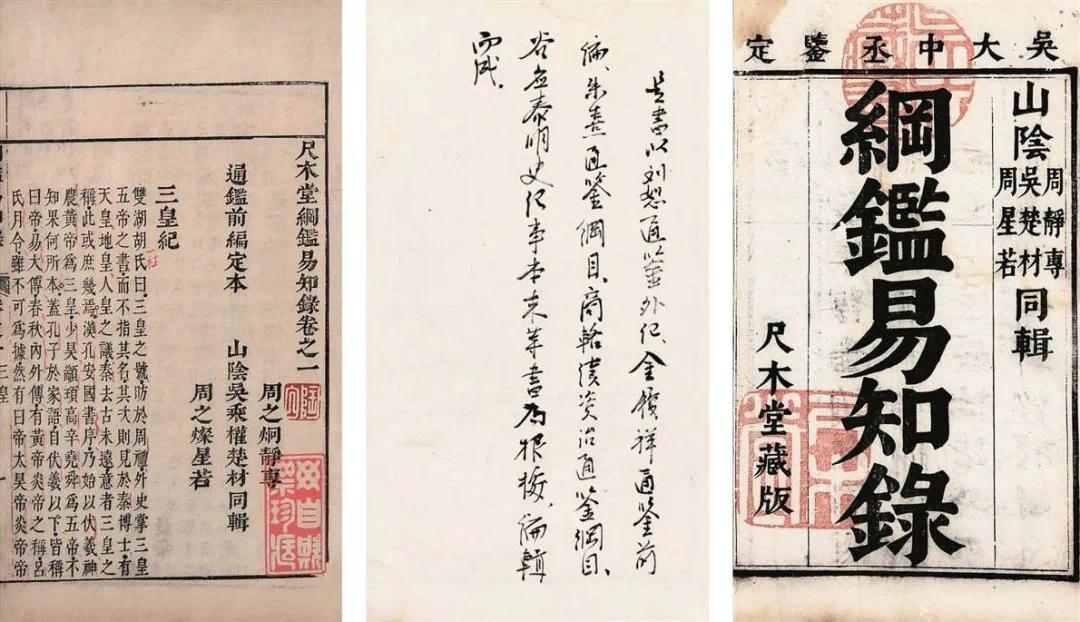 尺木堂綱鑑易知錄卷之一
周之炯靜專
通鑑前編定本 山陰吳乘權楚材同輯
周之燦星若
三皇紀
雙湖胡氏曰三皇之號昉於周禮外史掌三皇
五帝之書而不指其名其次則見於秦博士有
天皇地皇人皇之議秦去古未遠意者三皇之
稱此或庶幾焉漢孔安國書序乃始以伏羲神
農黃帝爲三皇少昊顓頊高辛堯舜爲五帝不
知果何所本蓋孔子於家語自伏羲以下皆稱
曰帝易大傳春秋內外傳有黃帝炎帝之稱呂
氏月令雖不可爲據然有曰帝太昊帝炎帝帝
是書以刘恕通鉴外纪、金履祥通鉴前
编、朱熹通鉴綱目、商辂续资治通鉴綱目、
谷应泰明史纪事本末等書为根據、编輯
而成。
吳大中丞鑒定
山陰
周靜專
吳楚材
周星若
同輯
綱鑑易知錄
尺木堂藏版